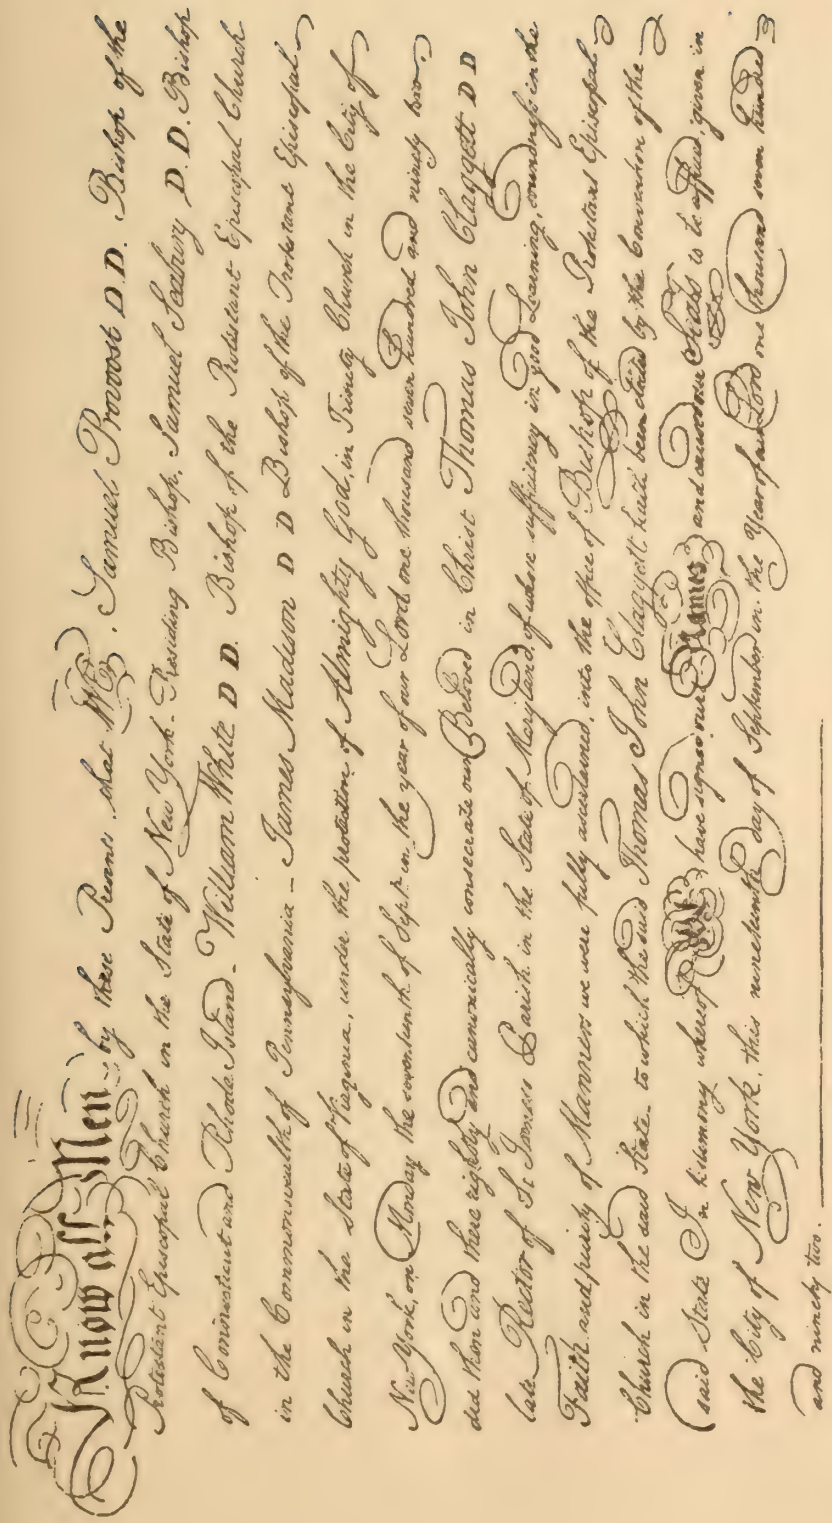 Know all Men by these Presents, that We, Samuel Provoost D.D. Bishop of the
Protestant Episcopal Church in the State of New York - Presiding Bishop, Samuel Seabury D.D. Bishop
of Connecticut and Rhode Island - William White D D. Bishop of the Protestant Episcopal Church
in the Commonwealth of Pennsylvania - James Madison D D Bishop of the Protestant Episcopal
Church in the State of Virginia, under the protection of Almighty God, in Trinity Church in the City of
New-York, on Monday the seventeenth of Sept. in the year of our Lord one thousand seven hundred and ninety two
did then and there rightly and canonically consecrate our Beloved in Christ Thomas John Claggett D D
late Rector of St James's Parish in the State of Maryland, of whose sufficiency in good Learning, soundness in the
Faith and purity of Manners we were fully ascertained, into the office of Bishop of the Protestant Episcopal
Church in the said State - to which the said Thomas John Claggett hath been elected by the Convention of the
said State In testimony whereof We have signed our Names and caused our Seals to be affixed, given in
the City of New York, this nineteenth day of September in the Year of our Lord one thousand seven hundred
and ninety two.